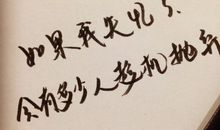 如果我失忆了.
会有多少人趁机抛弃